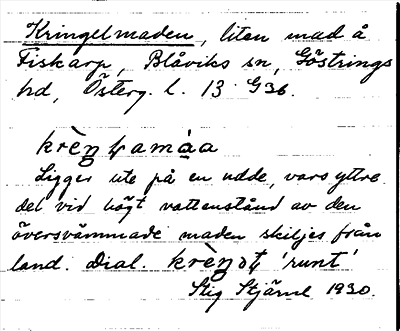 Kringelmaden, liten mad å
Fiskarp, Blåviks sn, Göstrings
hd, Österg. l. 13 G36.
krèŋɭamáa
Ligger ute på en udde, vars yttre
del vid högt vattenstånd av den
översvämmade maden skiljes från
land. Dial. krèŋət 'runt'
Stig Stjärne 1930.